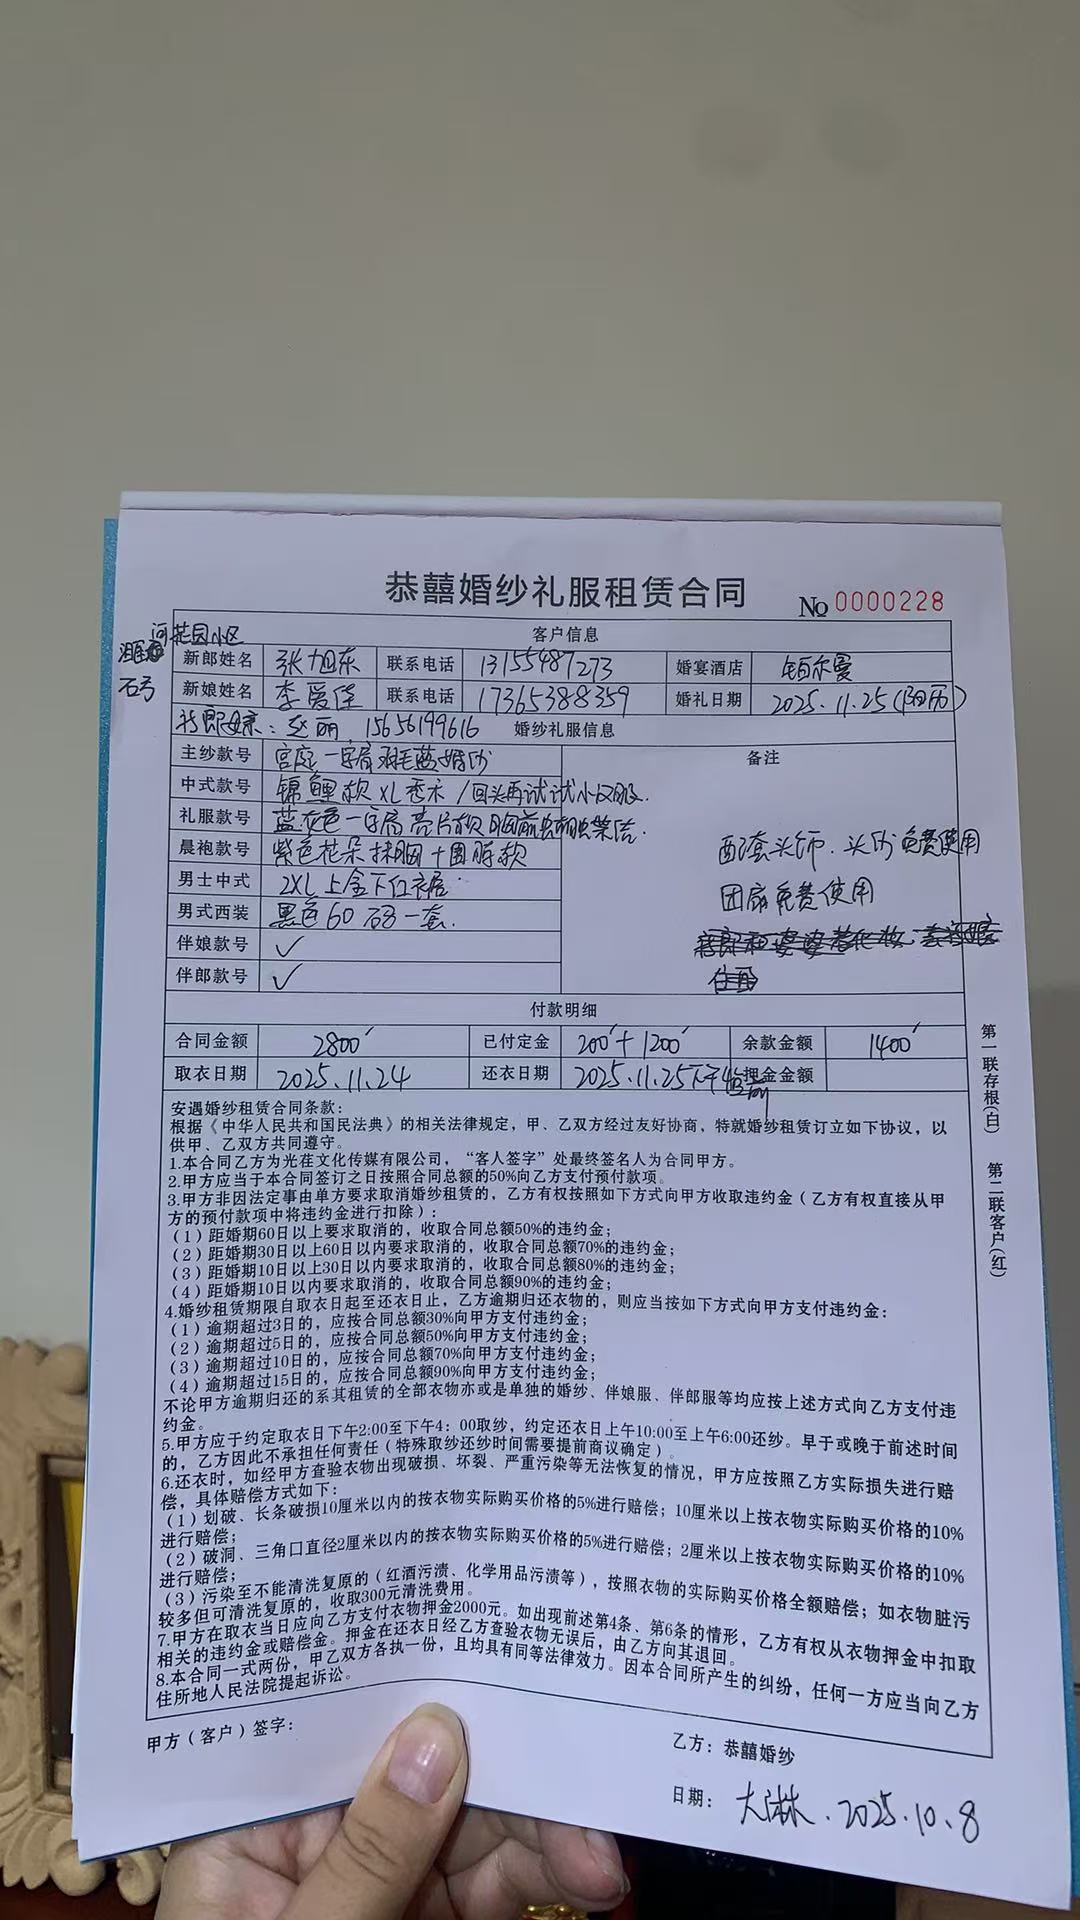 恭囍婚纱礼服租赁合同
No 0000228
花园小区
客户信息
新郎姓名 张旭东 联系电话 13155487273 婚宴酒店 铂尔曼
新娘姓名 李爱佳 联系电话 17365388359 婚礼日期 2025.11.25(阳历)
赵丽 15656199616 婚纱礼服信息
主纱款号 宫庭一字肩 婚纱
备注
中式款号 锦鲤款XL秀禾/回头再试试小汉服.
礼服款号 蓝灰色一字肩亮片款胸前
晨袍款号 紫色花朵抹胸+国风款
男士中式 2XL上金下红
男式西装 黑色60码一套.
伴娘款号 ✓
伴郎款号 ✓
配套头饰.头纱免费使用
团扇免费使用
付款明细
合同金额 2800 已付定金 200+1200 余款金额 1400
取衣日期 2025.11.24 还衣日期 2025.11.25下午 前 押金金额
第一联存根(白) 第二联客户(红)
安遇婚纱租赁合同条款:
根据《中华人民共和国民法典》的相关法律规定，甲、乙双方经过友好协商，特就婚纱租赁订立如下协议，以
供甲、乙双方共同遵守。
1.本合同乙方为光荏文化传媒有限公司，“客人签字”处最终签名人为合同甲方。
2.甲方应当于本合同签订之日按照合同总额的50%向乙方支付预付款项。
3.甲方非因法定事由单方要求取消婚纱租赁的，乙方有权按照如下方式向甲方收取违约金（乙方有权直接从甲
方的预付款项中将违约金进行扣除）:
(1)距婚期60日以上要求取消的，收取合同总额50%的违约金；
(2)距婚期30日以上60日以内要求取消的，收取合同总额70%的违约金；
(3)距婚期10日以上30日以内要求取消的，收取合同总额80%的违约金；
(4)距婚期10日以内要求取消的，收取合同总额90%的违约金；
4.婚纱租赁期限自取衣日起至还衣日止，乙方逾期归还衣物的，则应当按如下方式向甲方支付违约金:
(1)逾期超过3日的，应按合同总额30%向甲方支付违约金；
(2)逾期超过5日的，应按合同总额50%向甲方支付违约金；
(3)逾期超过10日的，应按合同总额70%向甲方支付违约金；
(4)逾期超过15日的，应按合同总额90%向甲方支付违约金；
不论甲方逾期归还的系其租赁的全部衣物亦或是单独的婚纱、伴娘服、伴郎服等均应按上述方式向乙方支付违
约金。
5.甲方应于约定取衣日下午2:00至下午4：00取纱，约定还衣日上午10:00至上午6:00还纱。早于或晚于前述时间
的，乙方因此不承担任何责任（特殊取纱还纱时间需要提前商议确定）。
6.还衣时，如经甲方查验衣物出现破损、坏裂、严重污染等无法恢复的情况，甲方应按照乙方实际损失进行赔
偿，具体赔偿方式如下:
(1)划破、长条破损10厘米以内的按衣物实际购买价格的5%进行赔偿；10厘米以上按衣物实际购买价格的10%
进行赔偿；
(2)破洞、三角口直径2厘米以内的按衣物实际购买价格的5%进行赔偿；2厘米以上按衣物实际购买价格的10%
进行赔偿；
(3)污染至不能清洗复原的（红酒污渍、化学用品污渍等），按照衣物的实际购买价格全额赔偿；如衣物脏污
较多但可清洗复原的，收取300元清洗费用。
7.甲方在取衣当日应向乙方支付衣物押金2000元。如出现前述第4条、第6条的情形，乙方有权从衣物押金中扣取
相关的违约金或赔偿金。押金在还衣日经乙方查验衣物无误后，由乙方向其退回。
8.本合同一式两份，甲乙双方各执一份，且均具有同等法律效力。因本合同所产生的纠纷，任何一方应当向乙方
住所地人民法院提起诉讼。
甲方（客户）签字:
乙方：恭囍婚纱
日期: 大淋.2025.10.8